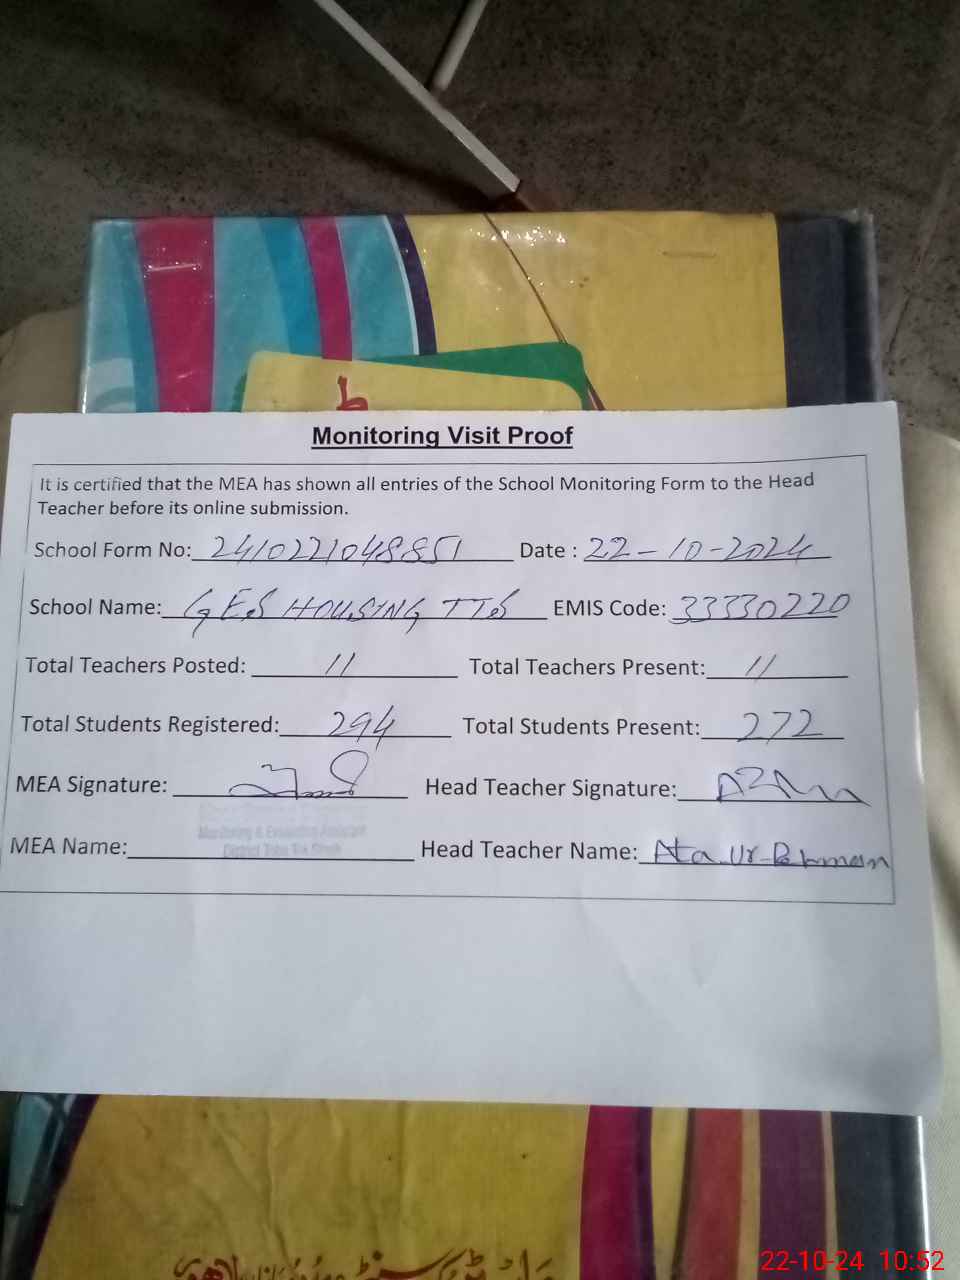 ط
Monitoring Visit Proof
It is certified that the MEA has shown all entries of the School Monitoring Form to the Head
Teacher before its online submission.
School Form No: 2410221048851 Date : 22-10-2024
School Name: GES HOUSING TTS EMIS Code: 33330220
Total Teachers Posted: 11 Total Teachers Present: 11
Total Students Registered: 294 Total Students Present: 272
MEA Signature: Head Teacher Signature:
Monitoring & Evaluating Assistant
District Toba Tek Singh
MEA Name: Head Teacher Name: Ata-Ur-Rehman
22-10-24 10:52